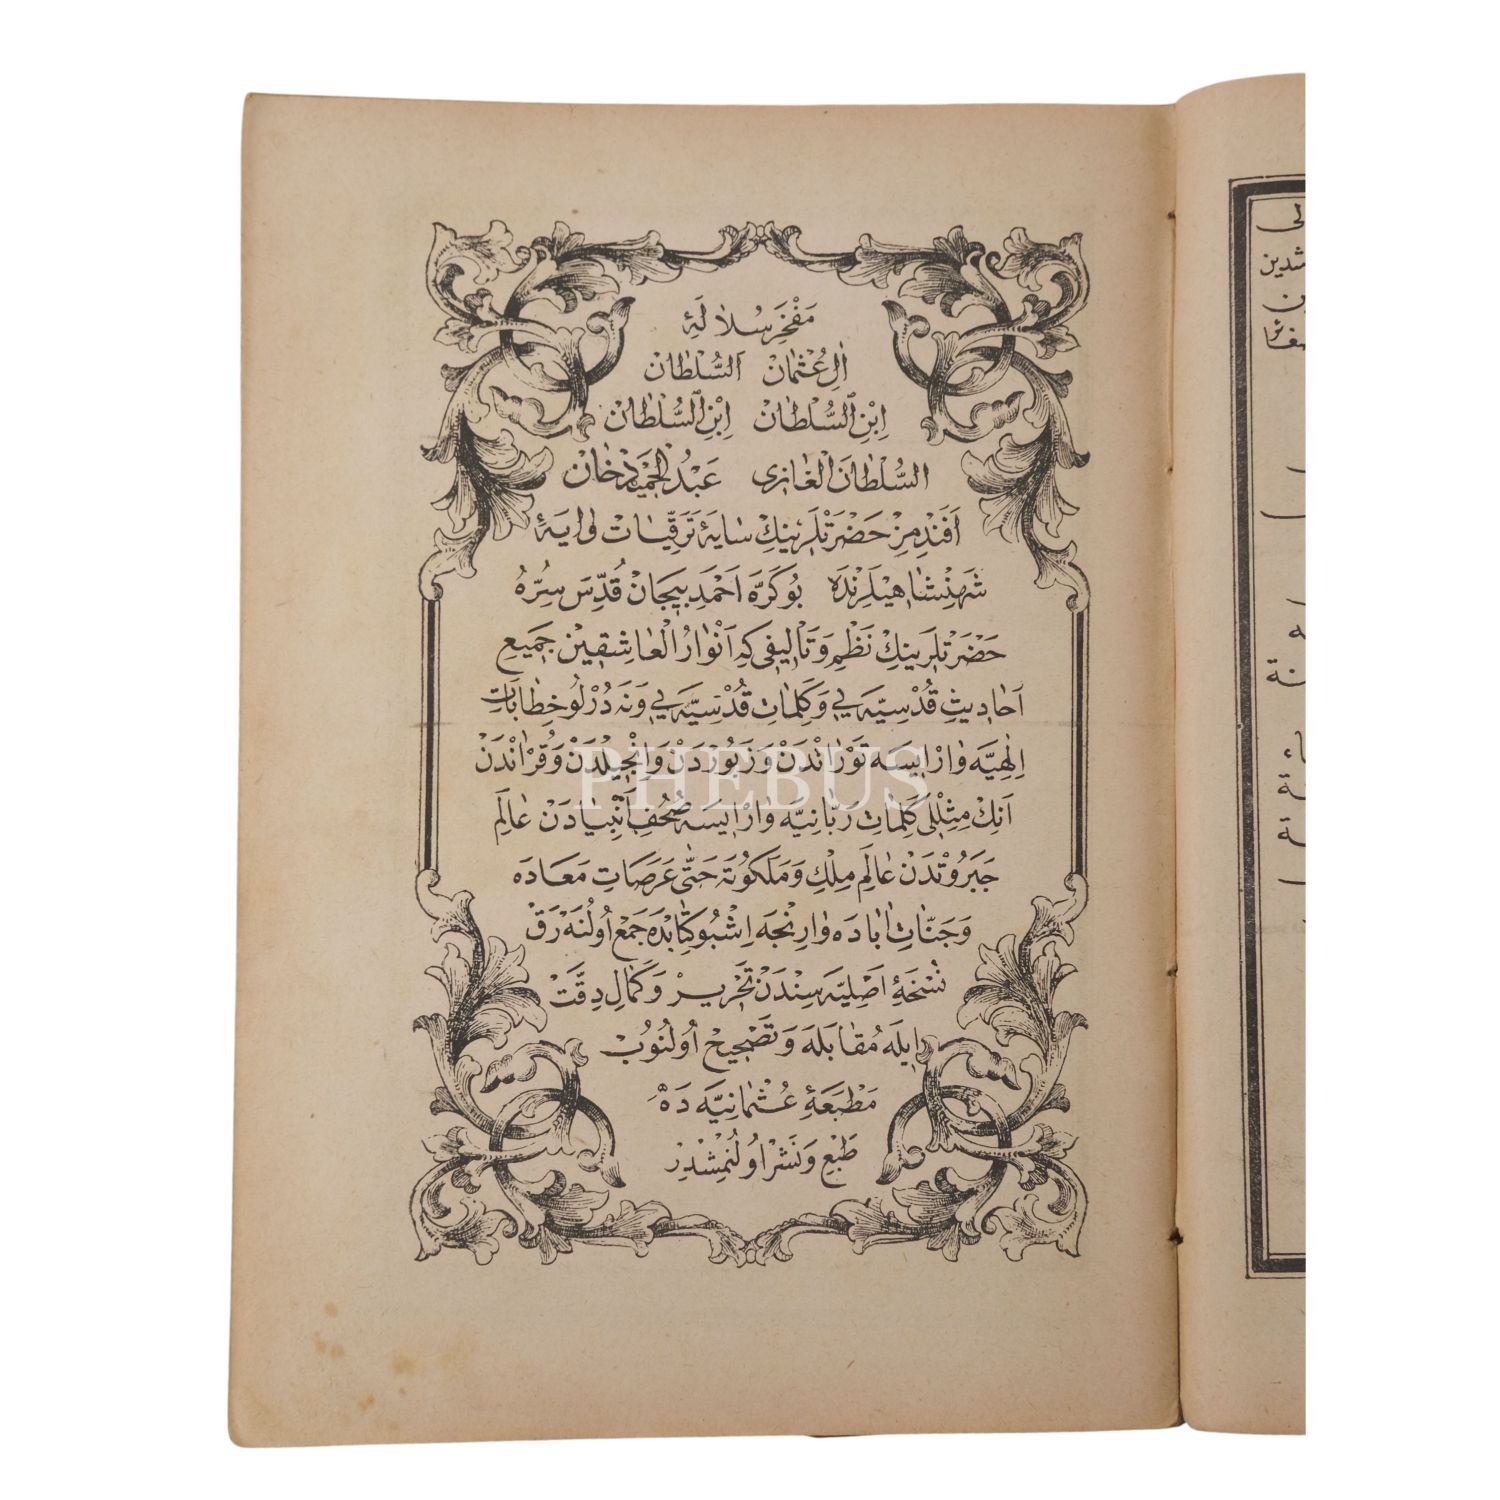 مَفْخَرِ سُلَالَهِٔ
اٰلِ عُثْمَانْ اَلسُّلْطَانْ
اِبْنِ السُّلْطَانْ اِبْنِ السُّلْطَانْ
السُّلْطَانَ الْغَازِى عَبْدُ الْحَمِيدْ خَانْ
اَفَنْدِمِزْ حَضْرَتْلَرِينِكْ سَايَهٔ تَرَقِّيَاتْ وَايَهٔ
شَهِنْشَاهِيلَرِنْدَه بُو كَرَّه اَحْمَدِ بِيجَانْ قُدِّسَ سِرُّهُ
حَضْرَتْلَرِينِكْ نَظْمِ وَتَأْلِيفِى كِه اَنْوَارُ الْعَاشِقِينْ جَمِيعِ
اَحَادِيثِ قُدْسِيَّه يِى وَكَلِمَاتِ قُدْسِيَّه يِى وَنَه دُرْلُو خِطَابَاتِ
اِلٰهِيَّه وَارْ اِيسَه تَوْرَاتْدَنْ وَزَبُورْدَنْ وَاِنْجِيلْدَنْ وَقُرْاٰنْدَنْ
اَنِكْ مِثْلِلِى كَلِمَاتِ رَبَّانِيَّه وَارْ اِيسَه صُحُفِ اَنْبِيَادَنْ عَالَمِ
جَبَرُوتْدَنْ عَالَمِ مِلْكِ وَمَلَكُوتَه حَتَّى عَرَصَاتِ مَعَادَه
وَجَنَّاتِ اٰبَادَه وَارِنْجَه اِشْبُو كِتَابْدَه جَمْعْ اُولُنَه رَقْ
نُسْخَهٔ اَصْلِيَّه سِنْدَنْ تَحْرِيرْ وَكَمَالِ دِقَّتْ
اِيلَه مُقَابَلَه وَتَصْحِيحْ اُولُنُوبْ
مَطْبَعَهٔ عُثْمَانِيَّه دَه
طَبْعِ وَنَشْرْ اُولُنْمِشْدِرْ
PHEBUS